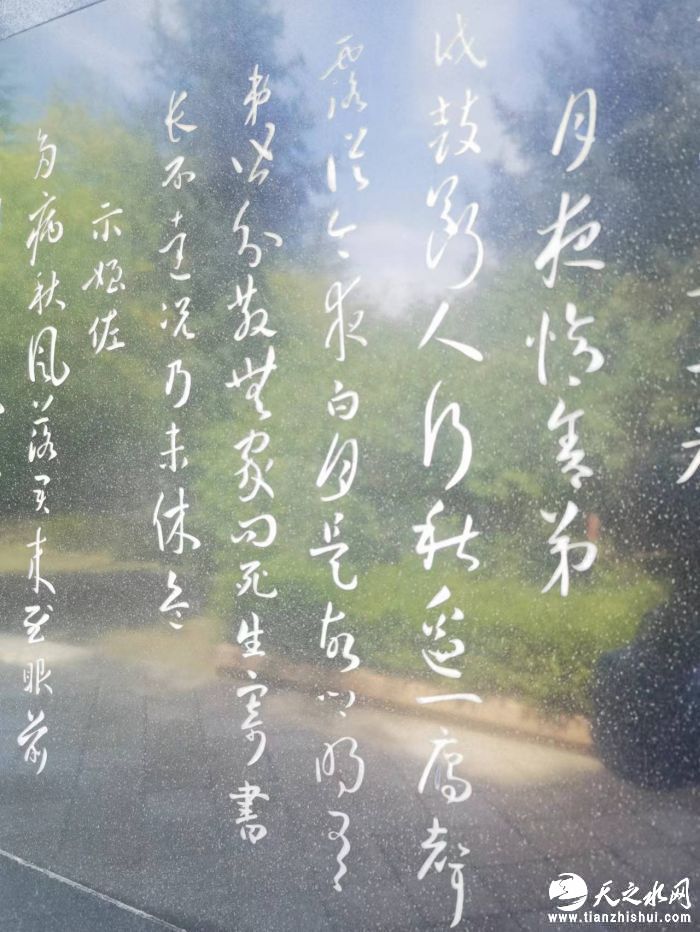 月夜憶舍弟
戍鼓斷人行秋邊一雁聲
露從今夜白月是故鄉明有
弟皆分散無家問死生寄書
长不達況乃未休兵
示姪佐
多病秋風落君来至眼前
天之水网
www.tianzhishui.com